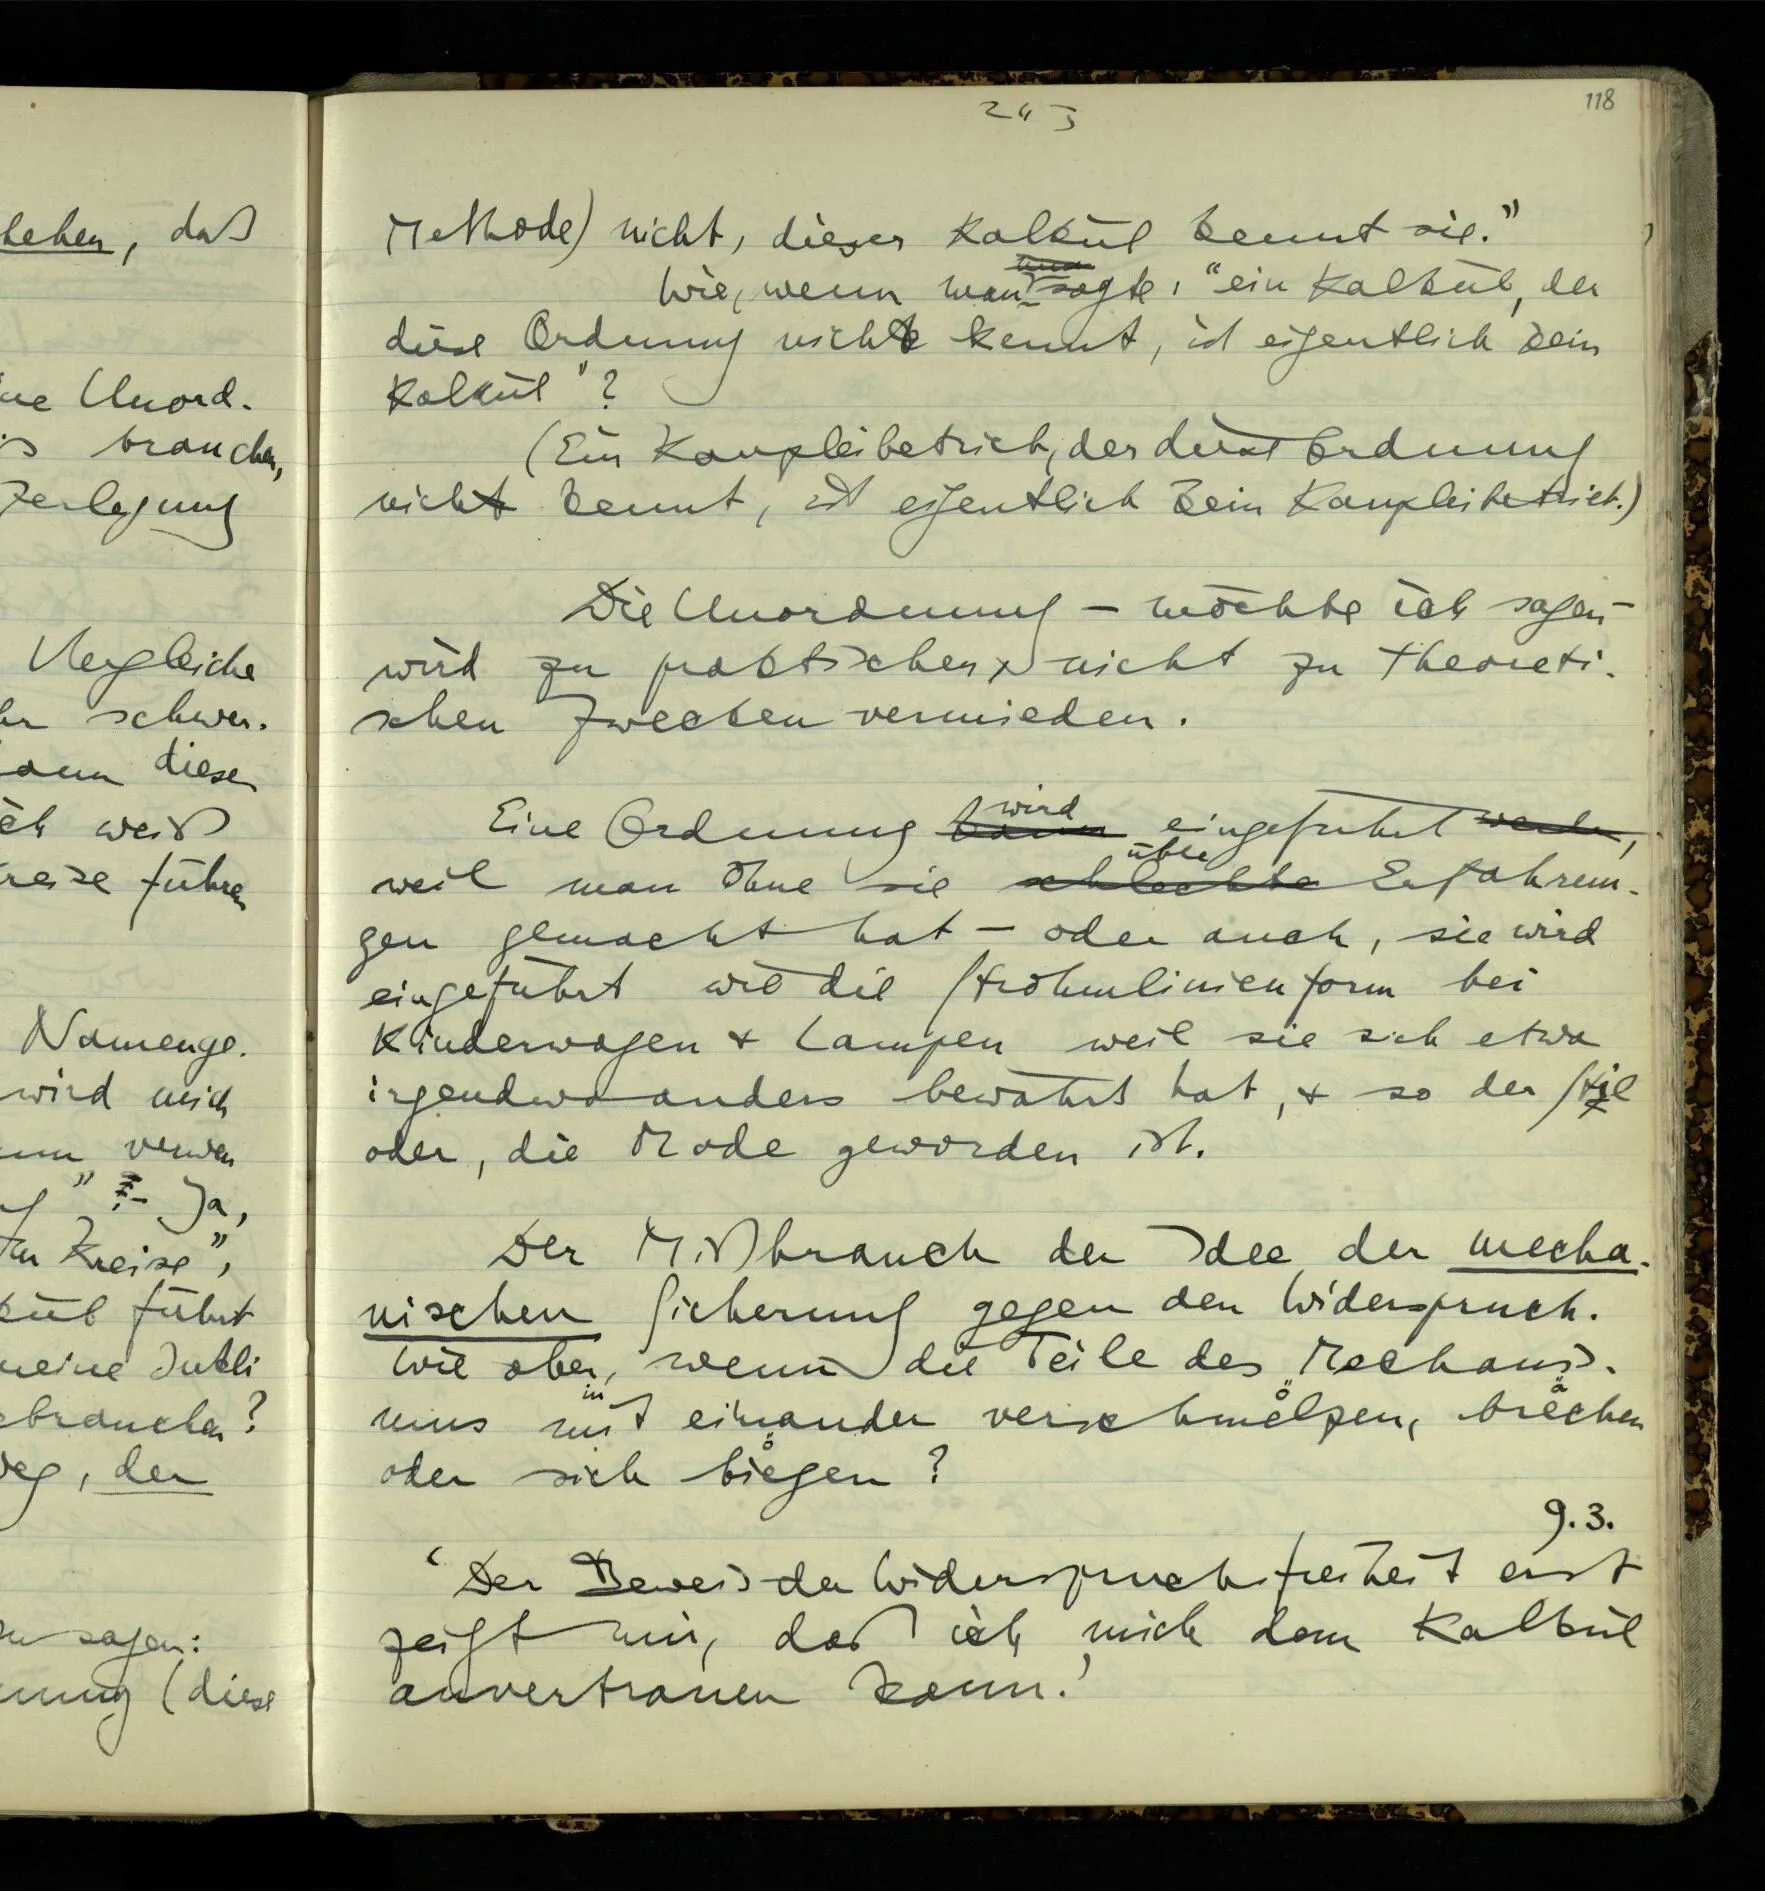 hehen, daß
ne Unord-
s brauchen,
Zerlegung
Vergleiche
hr schwer.
ann dieser
ich weiß
reise führen
Namenge-
wird mich
verwen
" – Ja,
Im Kreise",
kül führt
meine Intli
brauchen?
Weg, der
zu sagen:
nung (diese
243
118
Methode) nicht, dieser Kalkül kennt sie."
und
Wie, wenn man sagte: "ein Kalkül, der
diese Ordnung nicht kennt, ist eigentlich kein
Kalkül"?
(Ein Kanzleibetrieb, der diese Ordnung
nicht kennt, ist eigentlich kein Kanzleibetrieb.)
Die Unordnung – möchte ich sagen –
wird zu praktischen, nicht zu theoreti-
schen Zwecken vermieden.
wird
Eine Ordnung kann eingeführt werden,
üble
weil man ohne sie schlechte Erfahrun-
gen gemacht hat – oder auch, sie wird
eingeführt wie die Stromlinienform bei
Kinderwagen & Lampen weil sie sich etwa
irgendwo anders bewährt hat, & so der Stil
oder, die Mode geworden ist.
Der Mißbrauch der Idee der mecha-
nischen Sicherung gegen den Widerspruch.
Wie aber, wenn die Teile des Mechanis-
in
mus mit einander verschmölzen, brächen
oder sich bögen?
9.3.
'Der Beweis der Widerspruchsfreiheit erst
zeigt mir, daß ich mich dem Kalkül
anvertrauen kann.'